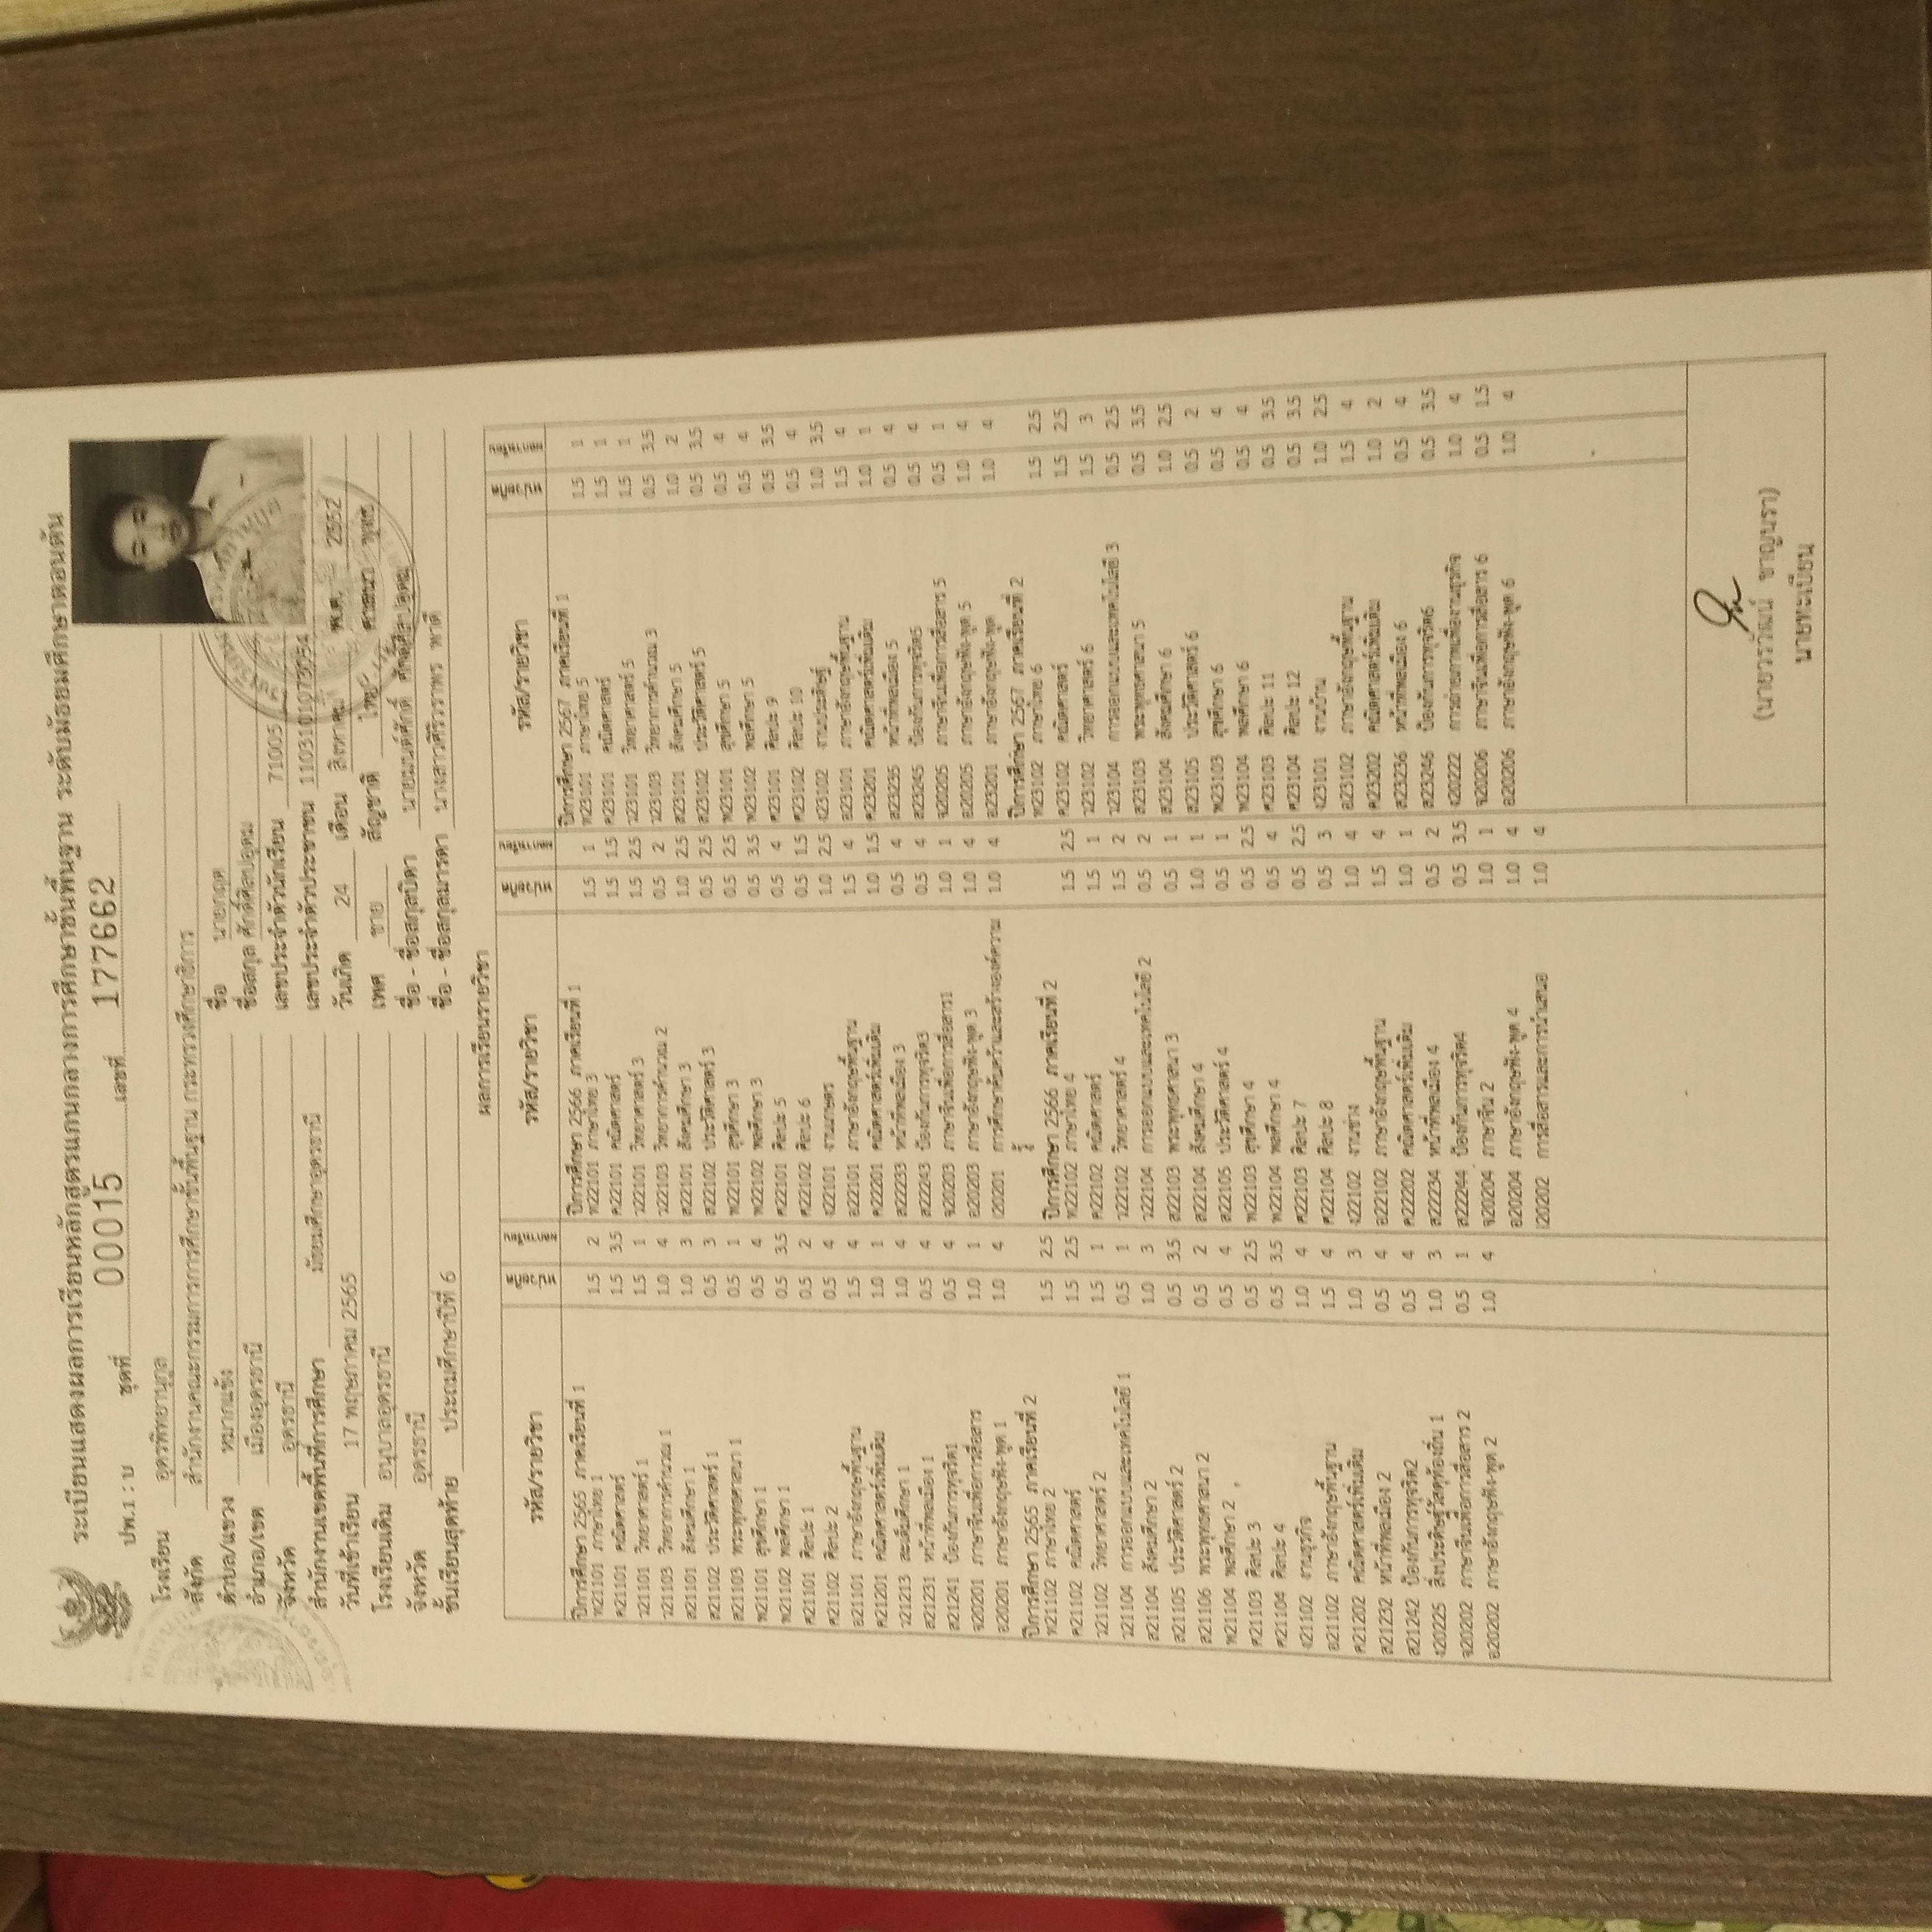 ระเบียนแสดงผลการเรียนหลักสูตรแกนกลางการศึกษาขั้นพื้นฐาน ระดับมัธยมศึกษาตอนต้น
ปพ.1 : บ ชุดที่ 00015 เลขที่ 177662
โรงเรียน อุดรพิทยานุกูล
สังกัด สำนักงานคณะกรรมการการศึกษาขั้นพื้นฐาน กระทรวงศึกษาธิการ
ตำบล/แขวง หมากแข้ง
อำเภอ/เขต เมืองอุดรธานี
จังหวัด อุดรธานี
สำนักงานเขตพื้นที่การศึกษา มัธยมศึกษาอุดรธานี
วันที่เข้าเรียน 17 พฤษภาคม 2565
โรงเรียนเดิม อนุบาลอุดรธานี
จังหวัด อุดรธานี
ชั้นเรียนสุดท้าย ประถมศึกษาปีที่ 6
ชื่อ นายกฤต
ชื่อสกุล ศักดิ์ศิลปอุดม
เลขประจำตัวนักเรียน 71005
เลขประจำตัวประชาชน
วันเกิด 24 เดือน สิงหาคม พ.ศ. 2552
เพศ ชาย สัญชาติ ไทย ศาสนา พุทธ
ชื่อ - ชื่อสกุลบิดา นายมนต์ศักดิ์ ศักดิ์ศิลปอุดม
ชื่อ - ชื่อสกุลมารดา นางสาวศิริวราพร พาดี
ผลการเรียนรายวิชา
รหัส/รายวิชา หน่วยกิต ผลการเรียน
ปีการศึกษา 2565 ภาคเรียนที่ 1
ท21101 ภาษาไทย 1 1.5 2
ค21101 คณิตศาสตร์ 1.5 3.5
ว21101 วิทยาศาสตร์ 1 1.5 1
ว21103 วิทยาการคำนวณ 1 1.0 4
ส21101 สังคมศึกษา 1 1.0 3
ส21102 ประวัติศาสตร์ 1 0.5 3
ส21103 พระพุทธศาสนา 1 0.5 1
พ21101 สุขศึกษา 1 0.5 4
พ21102 พลศึกษา 1 0.5 3.5
ศ21101 ศิลปะ 1 0.5 2
ศ21102 ศิลปะ 2 0.5 4
อ21101 ภาษาอังกฤษพื้นฐาน 1.5 4
ค21201 คณิตศาสตร์เพิ่มเติม 1.0 1
ว21213 สะเต็มศึกษา 1 1.0 4
ส21231 หน้าที่พลเมือง 1 0.5 4
ส21241 ป้องกันการทุจริต1 0.5 4
จ20201 ภาษาจีนเพื่อการสื่อสาร 1.0 1
อ20201 ภาษาอังกฤษฟัง-พูด 1 1.0 4
ปีการศึกษา 2565 ภาคเรียนที่ 2
ท21102 ภาษาไทย 2 1.5 2.5
ค21102 คณิตศาสตร์ 1.5 2.5
ว21102 วิทยาศาสตร์ 2 1.5 1
ว21104 การออกแบบและเทคโนโลยี 1 0.5 1
ส21104 สังคมศึกษา 2 1.0 3
ส21105 ประวัติศาสตร์ 2 0.5 3.5
ส21106 พระพุทธศาสนา 2 0.5 2
พ21104 พลศึกษา 2 0.5 4
ศ21103 ศิลปะ 3 0.5 2.5
ศ21104 ศิลปะ 4 0.5 3.5
ง21102 งานธุรกิจ 1.0 4
อ21102 ภาษาอังกฤษพื้นฐาน 1.5 4
ค21202 คณิตศาสตร์เพิ่มเติม 1.0 3
ส21232 หน้าที่พลเมือง 2 0.5 4
ส21242 ป้องกันการทุจริต2 0.5 4
ง20225 สิ่งประดิษฐ์วัสดุท้องถิ่น 1 1.0 3
จ20202 ภาษาจีนเพื่อการสื่อสาร 2 0.5 1
อ20202 ภาษาอังกฤษฟัง-พูด 2 1.0 4
รหัส/รายวิชา หน่วยกิต ผลการเรียน
ปีการศึกษา 2566 ภาคเรียนที่ 1
ท22101 ภาษาไทย 3 1.5 1
ค22101 คณิตศาสตร์ 1.5 1.5
ว22101 วิทยาศาสตร์ 3 1.5 2.5
ว22103 วิทยาการคำนวณ 2 0.5 2
ส22101 สังคมศึกษา 3 1.0 2.5
ส22102 ประวัติศาสตร์ 3 0.5 2.5
พ22101 สุขศึกษา 3 0.5 2.5
พ22102 พลศึกษา 3 0.5 3.5
ศ22101 ศิลปะ 5 0.5 4
ศ22102 ศิลปะ 6 0.5 1.5
ง22101 งานเกษตร 1.0 2.5
อ22101 ภาษาอังกฤษพื้นฐาน 1.5 4
ค22201 คณิตศาสตร์เพิ่มเติม 1.0 1.5
ส22233 หน้าที่พลเมือง 3 0.5 4
ส22243 ป้องกันการทุจริต3 0.5 4
จ20203 ภาษาจีนเพื่อการสื่อสาร1 1.0 1
อ20203 ภาษาอังกฤษฟัง-พูด 3 1.0 4
I20201 การศึกษาค้นคว้าและสร้างองค์ความรู้ 1.0 4
ปีการศึกษา 2566 ภาคเรียนที่ 2
ท22102 ภาษาไทย 4 1.5 2.5
ค22102 คณิตศาสตร์ 1.5 1
ว22102 วิทยาศาสตร์ 4 1.5 2
ว22104 การออกแบบและเทคโนโลยี 2 0.5 2
ส22103 พระพุทธศาสนา 3 0.5 1
ส22104 สังคมศึกษา 4 1.0 1
ส22105 ประวัติศาสตร์ 4 0.5 1
พ22103 สุขศึกษา 4 0.5 2.5
พ22104 พลศึกษา 4 0.5 4
ศ22103 ศิลปะ 7 0.5 2.5
ศ22104 ศิลปะ 8 0.5 3
ง22102 งานช่าง 1.0 4
อ22102 ภาษาอังกฤษพื้นฐาน 1.5 4
ค22202 คณิตศาสตร์เพิ่มเติม 1.0 1
ส22234 หน้าที่พลเมือง 4 0.5 2
ส22244 ป้องกันการทุจริต4 0.5 3.5
จ20204 ภาษาจีน 2 1.0 1
อ20204 ภาษาอังกฤษฟัง-พูด 4 1.0 4
I20202 การสื่อสารและการนำเสนอ 1.0 4
รหัส/รายวิชา หน่วยกิต ผลการเรียน
ปีการศึกษา 2567 ภาคเรียนที่ 1
ท23101 ภาษาไทย 5 1.5 1
ค23101 คณิตศาสตร์ 1.5 1
ว23101 วิทยาศาสตร์ 5 1.5 1
ว23103 วิทยาการคำนวณ 3 0.5 3.5
ส23101 สังคมศึกษา 5 1.0 2
ส23102 ประวัติศาสตร์ 5 0.5 3.5
พ23101 สุขศึกษา 5 0.5 4
พ23102 พลศึกษา 5 0.5 4
ศ23101 ศิลปะ 9 0.5 3.5
ศ23102 ศิลปะ 10 0.5 4
ง23102 งานประดิษฐ์ 1.0 3.5
อ23101 ภาษาอังกฤษพื้นฐาน 1.5 4
ค23201 คณิตศาสตร์เพิ่มเติม 1.0 1
ส23235 หน้าที่พลเมือง 5 0.5 4
ส23245 ป้องกันการทุจริต5 0.5 4
จ20205 ภาษาจีนเพื่อการสื่อสาร 5 0.5 1
อ20205 ภาษาอังกฤษฟัง-พูด 5 1.0 4
อ23201 ภาษาอังกฤษฟัง-พูด 1.0 4
ปีการศึกษา 2567 ภาคเรียนที่ 2
ท23102 ภาษาไทย 6 1.5 2.5
ค23102 คณิตศาสตร์ 1.5 2.5
ว23102 วิทยาศาสตร์ 6 1.5 3
ว23104 การออกแบบและเทคโนโลยี 3 0.5 2.5
ส23103 พระพุทธศาสนา 5 0.5 3.5
ส23104 สังคมศึกษา 6 1.0 2.5
ส23105 ประวัติศาสตร์ 6 0.5 2
พ23103 สุขศึกษา 6 0.5 4
พ23104 พลศึกษา 6 0.5 4
ศ23103 ศิลปะ 11 0.5 3.5
ศ23104 ศิลปะ 12 0.5 3.5
ง23101 งานบ้าน 1.0 2.5
อ23102 ภาษาอังกฤษพื้นฐาน 1.5 4
ค23202 คณิตศาสตร์เพิ่มเติม 1.0 2
ส23236 หน้าที่พลเมือง 6 0.5 4
ส23246 ป้องกันการทุจริต6 0.5 3.5
ง20222 การถ่ายภาพเพื่องานธุรกิจ 1.0 4
จ20206 ภาษาจีนเพื่อการสื่อสาร 6 0.5 1.5
อ20206 ภาษาอังกฤษฟัง-พูด 6 1.0 4
(นายวรวัฒน์ ชาญนรา)
นายทะเบียน